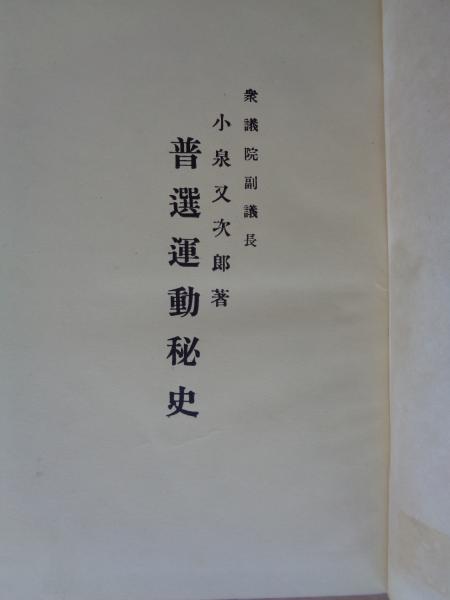 衆議院副議長
小泉又次郎著
普選運動秘史